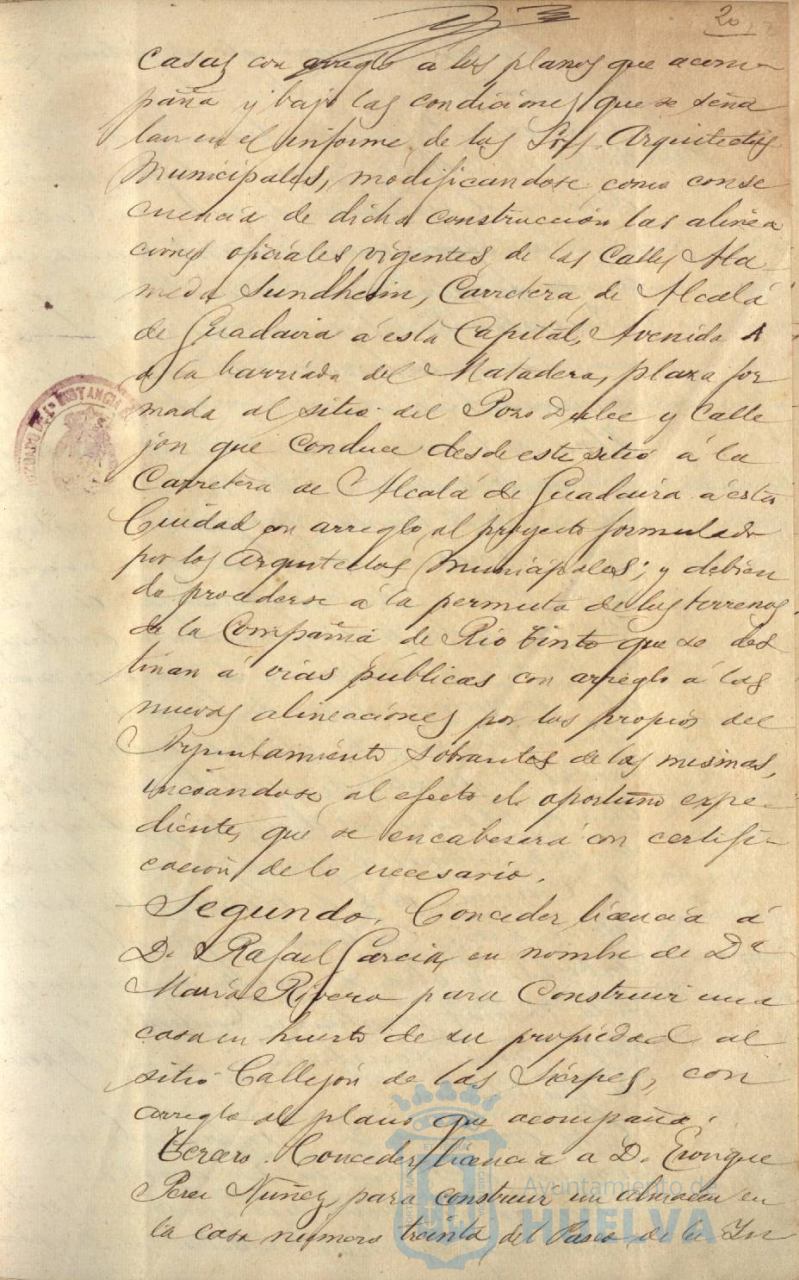 20
casas con arreglo á los planos que acom-
paña y bajo las condiciones que se seña
lan en el informe de los Sres Arquitectos
Municipales, modificandose como conse
cuencia de dicha construcción las alinea
ciones oficiales vigentes de las Calles Ala-
meda Sundheim, Carretera de Alcalá
de Guadaira á esta Capital, Avenida A
á la barriada del Matadero, plaza for
mada al sitio del Pozo Dulce y Calle
jon que conduce desde este sitio á la
Carretera de Alcalá de Guadaira á esta
Ciudad con arreglo al proyecto formulado
por los Arquitectos Municipales; y debien
do procederse á la permuta de los terrenos
de la Compañia de Rio Tinto que se des
tinan á vias públicas con arreglo á las
nuevas alineaciones por los propios del
Ayuntamiento sobrantes de las mismas,
incoandose al efecto el oportuno expe-
diente, que se encabesará con certifi-
cación de lo necesario.
Segundo. Conceder licencia á
D. Rafael Garcia, en nombre de Dª
Maria Rivero para Construir una
casa en huerto de su propiedad al
sitio Callejón de las Sierpes, con
arreglo al plano que acompaña.
Tercero. Conceder licencia a D. Enrique
Perez Nuñez, para construir un almacen en
la casa numero treinta del Paseo de la In
Ayuntamiento de
HUELVA